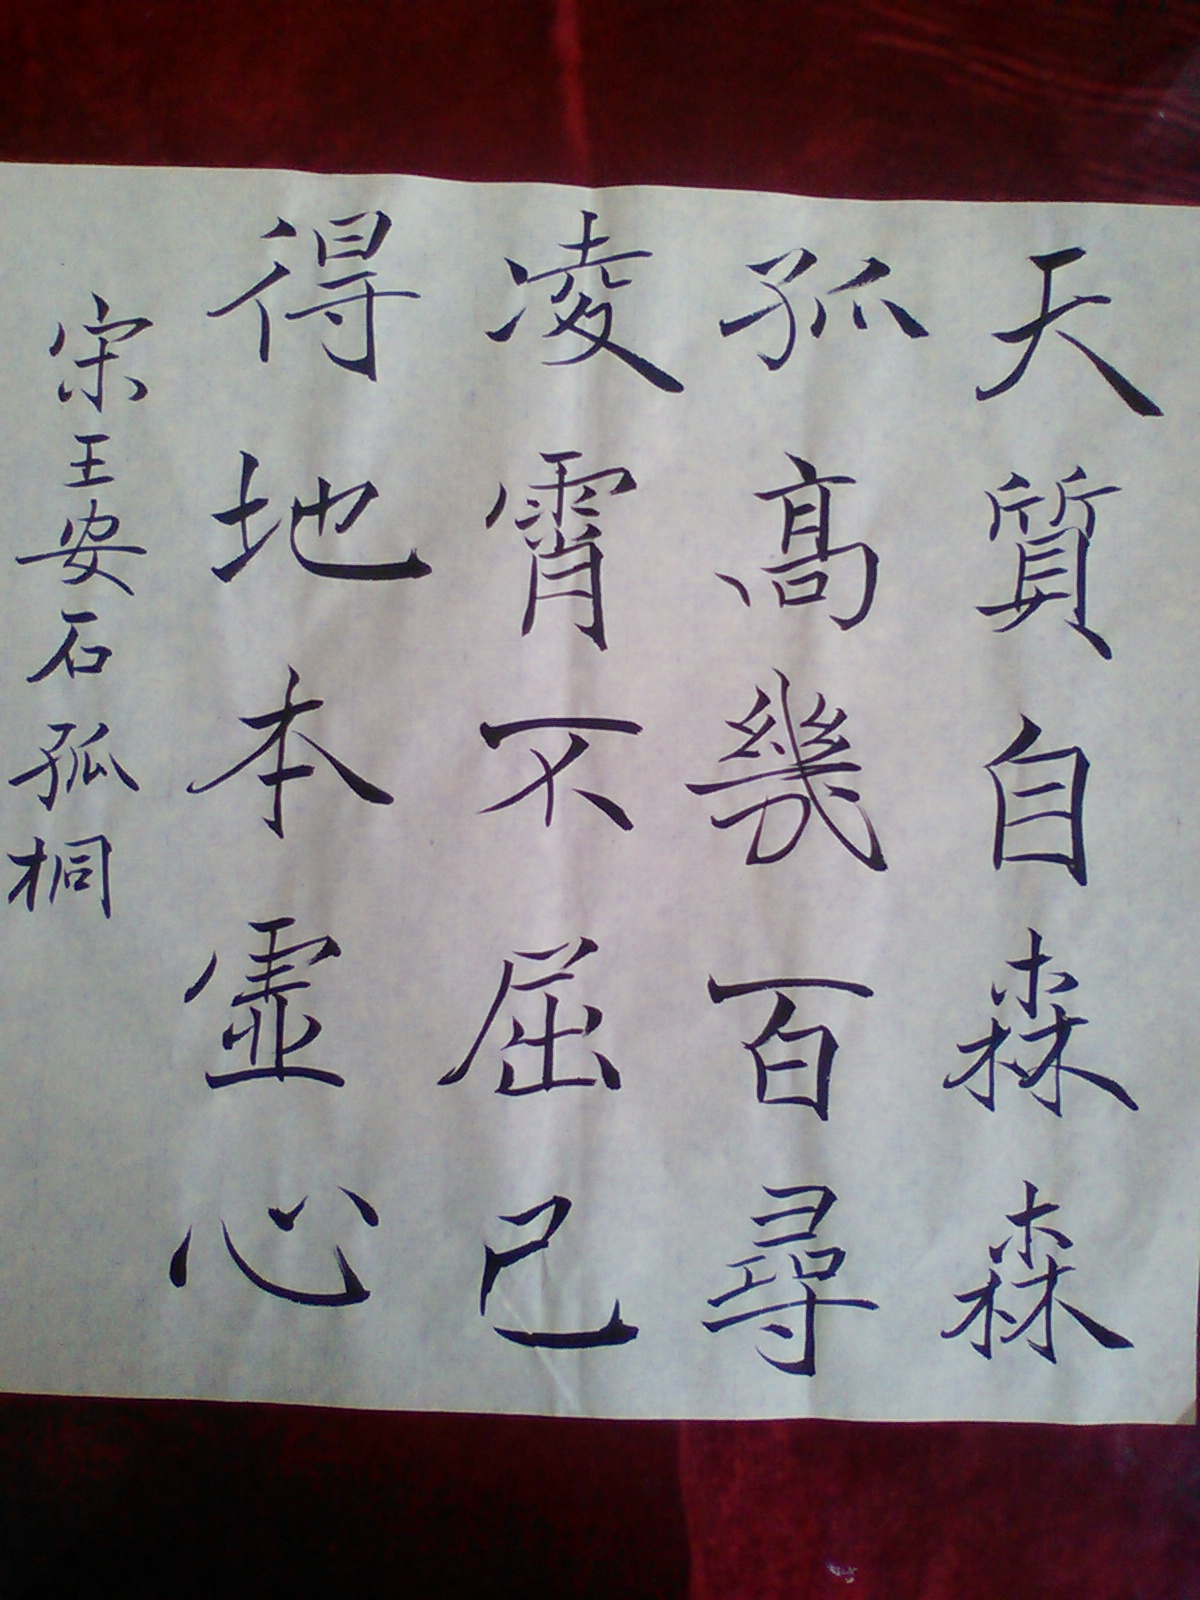 天質自森森
孤高幾百尋
凌霄不屈己
得地本虛心
宋王安石孤桐